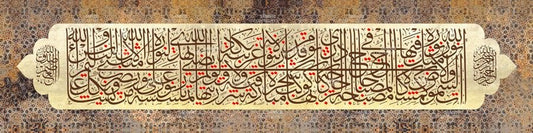 الله نور السموات والأرض مثل نوره كمشكوة فيها مصباح المصباح في زجاجة الزجاجة كأنها كوكب دري يوقد من شجرة مباركة زيتونة لا شرقية ولا غربية يكاد زيتها يضيء ولو لم تمسسه نار نور على نور يهدي الله لنوره من يشاء ويضرب الله الأمثال للناس